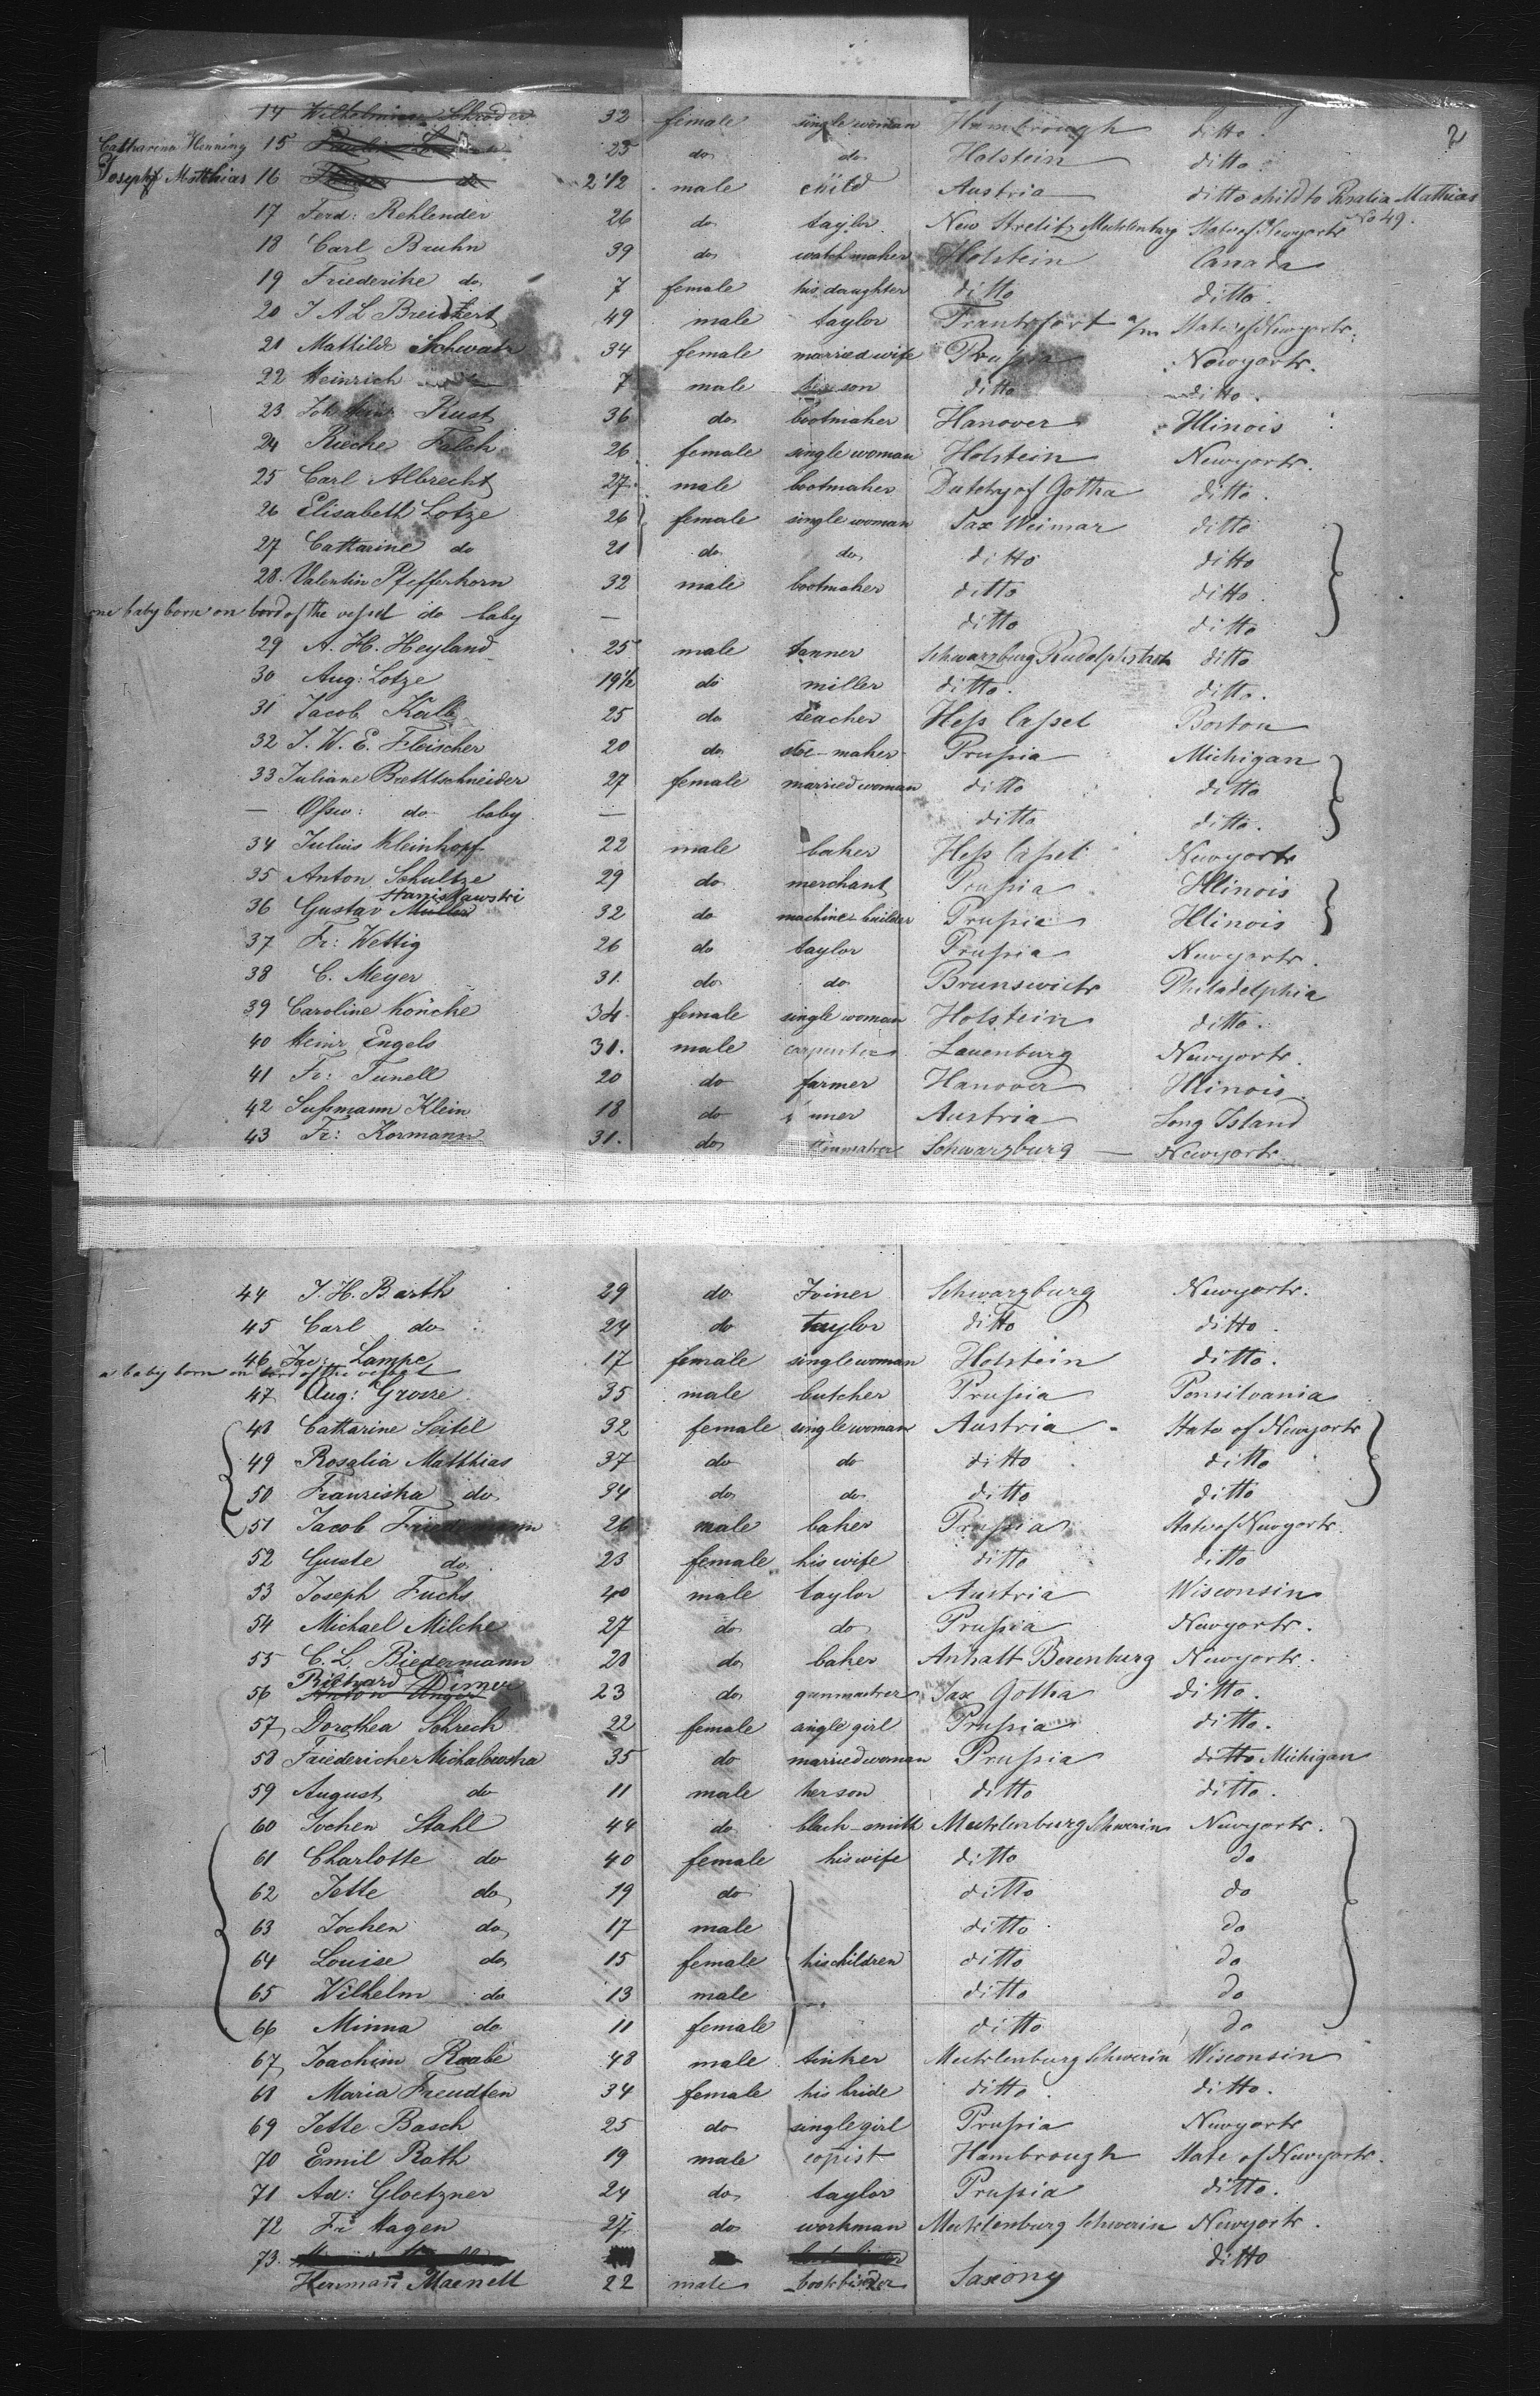 2
14 Wilhelmine Schröder 32 female single woman Hambrough ditto.
Catharina Henning 15 25 do do Holstein ditto.
Joseph Matthias 16 do 2 1/2 male child Austria ditto child to Rosalia Mathias No 49.
17 Ferd: Rehlender 26 do taylor New Strelitz Mecklenburg State of Newyork
18 Carl Bruhn 39 do watchmaker Holstein Canada
19 Friederike do 7 female his daughter ditto ditto.
20 J A L Breickert 49 male taylor Frankfort a/m State of Newyork.
21 Mathilde Schwatz 34 female married wife Prussia Newyork.
22 Heinrich 7 male her son ditto ditto.
23 Joh: Heinr Rust 36 do bootmaker Hanover Illinois
24 Rieche Falch 26 female single woman Holstein Newyork.
25 Carl Albrecht 27 male bootmaker Dutchy of Gotha ditto.
26 Elisabeth Lotze 26 female single woman Sax Weimar ditto
27 Cattarine do 21 do do ditto ditto
28. Valentin Pfefferkorn 32 male bootmaker ditto ditto.
one baby born on bord of the vessel do baby — ditto ditto
29 A. H. Heyland 25 male tanner Schwarzburg Rudolphstadt ditto
30 Aug: Lotze 19 1/2 do miller ditto. ditto.
31 Jacob Kalb 25 do teacher Hess Cassel Boston
32 J. W. E. Fleischer 20 do shoe-maker Prussia Michigan
33 Juliane Brettschneider 27 female married woman ditto ditto
— Ossw: do baby — ditto ditto.
34 Julius Kleinhopf 22 male baker Hess Cassel Newyork
35 Anton Schultze 29 do merchant Prussia Illinois
Stanislawski
36 Gustav Muller 32 do machine-builder Prussia Illinois
37 Fr: Wettig 26 do taylor Prussia Newyork.
38 C. Meyer 31. do do Brunswick Philadelphia
39 Caroline Köncke 34. female single woman Holstein ditto.
40 Heinr Engels 31. male carpenter Lauenburg Newyork.
41 Fr: Tunell 20 do farmer Hanover Illinois.
42 Sussmann Klein 18 do Austria Long Island
43 Fr: Kormann 31. do Schwarzburg — Newyork
44 J. H. Barth 29 do Joiner Schwarzburg Newyork.
45 Carl do 24 do taylor ditto ditto.
46 Jac: Lampe 17 female single woman Holstein ditto.
a baby born on bord of the vessel
47 Aug: Grosse 35 male butcher Prussia Pensilvania
48 Catharine Seitel 32 female single woman Austria State of Newyork
49 Rosalia Matthias 37 do do ditto ditto
50 Franziska do 34 do do ditto ditto
51 Jacob Friedemann 26 male baker Prussia State of Newyork.
52 Guste do 23 female his wife ditto ditto
53 Joseph Fuchs 40 male taylor Austria Wisconsin
54 Michael Milche 27 do do Prussia Newyork.
55 C. L. Biedermann 28 do baker Anhalt Berenburg Newyork.
Richard Dimer
56 Anton Unger 23 do gunmacker Sax Gotha ditto.
57 Dorothea Schreck 22 female single girl Prussia ditto.
58 Friedericke Michalowska 35 do married woman Prussia ditto Michigan
59 August do 11 male her son ditto ditto.
60 Jochen Stahl 44 do black-smith Mecklenburg Schwerin Newyork.
61 Charlotte do 40 female his wife ditto do
62 Jette do 19 do ditto do
63 Jochen do 17 male ditto do
64 Louise do 15 female his children ditto do
65 Wilhelm do 13 male ditto do
66 Minna do 11 female ditto do
67 Joachim Raabe 48 male tinker Mecklenburg Schwerin Wisconsin
68 Maria Freudten 34 female his bride ditto. ditto.
69 Jette Basch 25 do single girl Prussia Newyork
70 Emil Rath 19 male copist Hambrough State of Newyork.
71 Ad: Gloetzner 24 do taylor Prussia ditto.
72 Fr Hagen 27 do workman Mecklenburg Schwerin Newyork.
73. ditto
Herman Maenell 22 male bookbinder Saxony